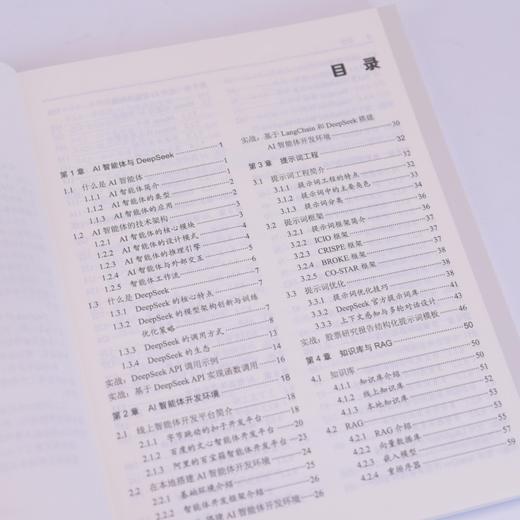 目 录
第 1 章 AI 智能体与 DeepSeek 1
1.1 什么是 AI 智能体 1
1.1.1 AI 智能体简介 1
1.1.2 AI 智能体的类型 2
1.1.3 AI 智能体的应用 2
1.2 AI 智能体的技术架构 3
1.2.1 AI 智能体的核心模块 3
1.2.2 AI 智能体的设计模式 4
1.2.3 AI 智能体的推理引擎 4
1.2.4 AI 智能体与外部交互 5
1.2.5 智能体工作流 6
1.3 什么是 DeepSeek 7
1.3.1 DeepSeek 的核心特点 7
1.3.2 DeepSeek 的模型架构创新与训练
优化策略 7
1.3.3 DeepSeek 的调用方式 8
1.3.4 DeepSeek 的生态 13
实战：DeepSeek API 调用示例 14
实战：基于 DeepSeek API 实现函数调用 16
第 2 章 AI 智能体开发环境 18
2.1 线上智能体开发平台简介 18
2.1.1 字节跳动的扣子开发平台 18
2.1.2 百度的文心智能体开发平台 20
2.1.3 阿里的百宝箱智能体开发平台 23
2.2 在本地搭建 AI 智能体开发环境 24
2.2.1 基础环境介绍 25
2.2.2 智能体开发框架介绍 26
搭建 AI 智能体开发环境 26
实战：基于 LangChain 和 DeepSeek 搭建
AI 智能体开发环境 30
第 3 章 提示词工程 32
3.1 提示词工程简介 32
3.1.1 提示词工程的特点 32
3.1.2 提示词中的主要角色 33
3.1.3 提示词分类 34
3.2 提示词框架 36
3.2.1 提示词框架简介 36
3.2.2 ICIO 框架 36
3.2.3 CRISPE 框架 37
3.2.4 BROKE 框架 37
3.2.5 CO-STAR 框架 38
3.3 提示词优化 38
3.3.1 提示词优化技巧 38
3.3.2 DeepSeek 官方提示词库 41
3.3.3 上下文感知与多轮对话设计 43
实战：股票研究报告结构化提示词模板 46
第 4 章 知识库与 RAG 50
4.1 知识库 50
4.1.1 知识库介绍 50
4.1.2 线上知识库 51
4.1.3 本地知识库 52
4.2 RAG 53
4.2.1 RAG 介绍 53
4.2.2 向量数据库 55
4.2.3 嵌入模型 57
4.2.4 重排序器 59